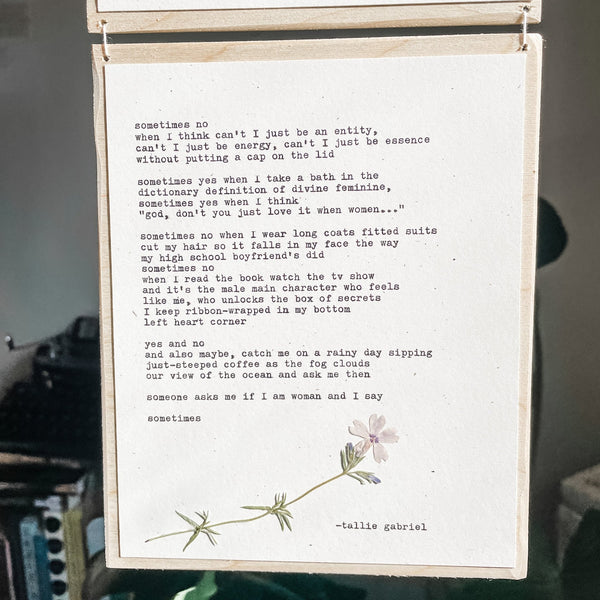 sometimes no
when I think can't I just be an entity,
can't I just be energy, can't I just be essence
without putting a cap on the lid
sometimes yes when I take a bath in the
dictionary definition of divine feminine,
sometimes yes when I think
"god, don't you just love it when women..."
sometimes no when I wear long coats fitted suits
cut my hair so it falls in my face the way
my high school boyfriend's did
sometimes no
when I read the book watch the tv show
and it's the male main character who feels
like me, who unlocks the box of secrets
I keep ribbon-wrapped in my bottom
left heart corner
yes and no
and also maybe, catch me on a rainy day sipping
just-steeped coffee as the fog clouds
our view of the ocean and ask me then
someone asks me if I am woman and I say
sometimes
-tallie gabriel